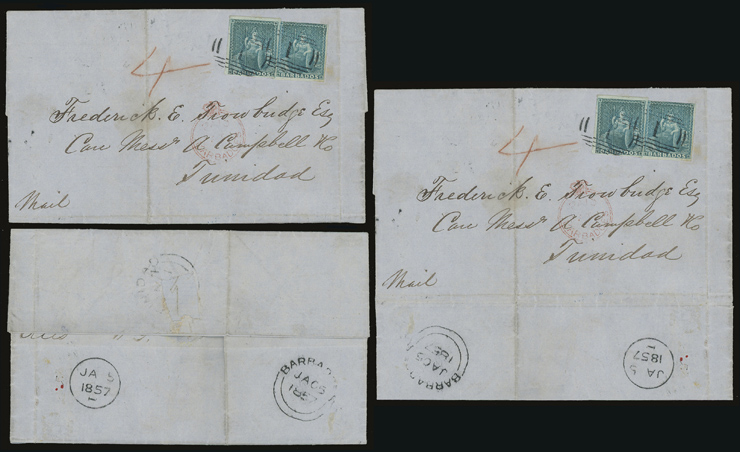 4
BARBADOS BARBADOS
Frederick. E. Trowbridge Esq
Care Messrs A Campbell & Co
Trinidad
Mail
JA 5
1857
BARBADOS
JA 05
1857
4
BARBADOS BARBADOS
Frederick. E. Trowbridge Esq
Care Messrs A Campbell & Co
Trinidad
Mail
BARBADOS
JA 05
1857
JA 5
1857